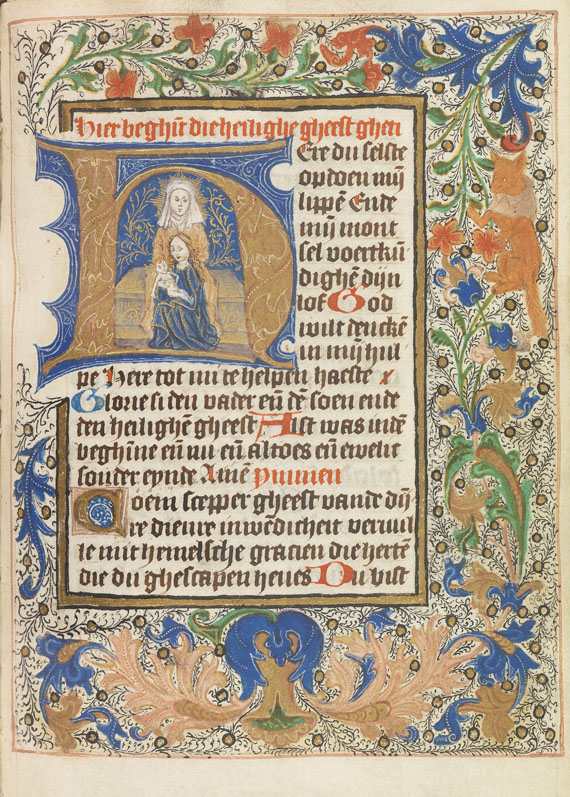 Hier beghīt die heilighe gheest ghetı
HEre du selste
op doen mij
lippē Ende
mij mont
sel voertkū
dighē dijn
lof God
wilt dencke
in mijn hul
pe Here tot mi te helpen haeste
Glorie si den vader eñ dē soen ende
den heilighē gheest Alst was indē
beghīne eñ nu eñ altoes eñ ewelic
sonder eynde Amē ymmen
Coem scepper gheest vande dij
re dienre inwēdicheit vervul
le mit hemelsche gracien die hertē
die du ghescapen heves Du bist